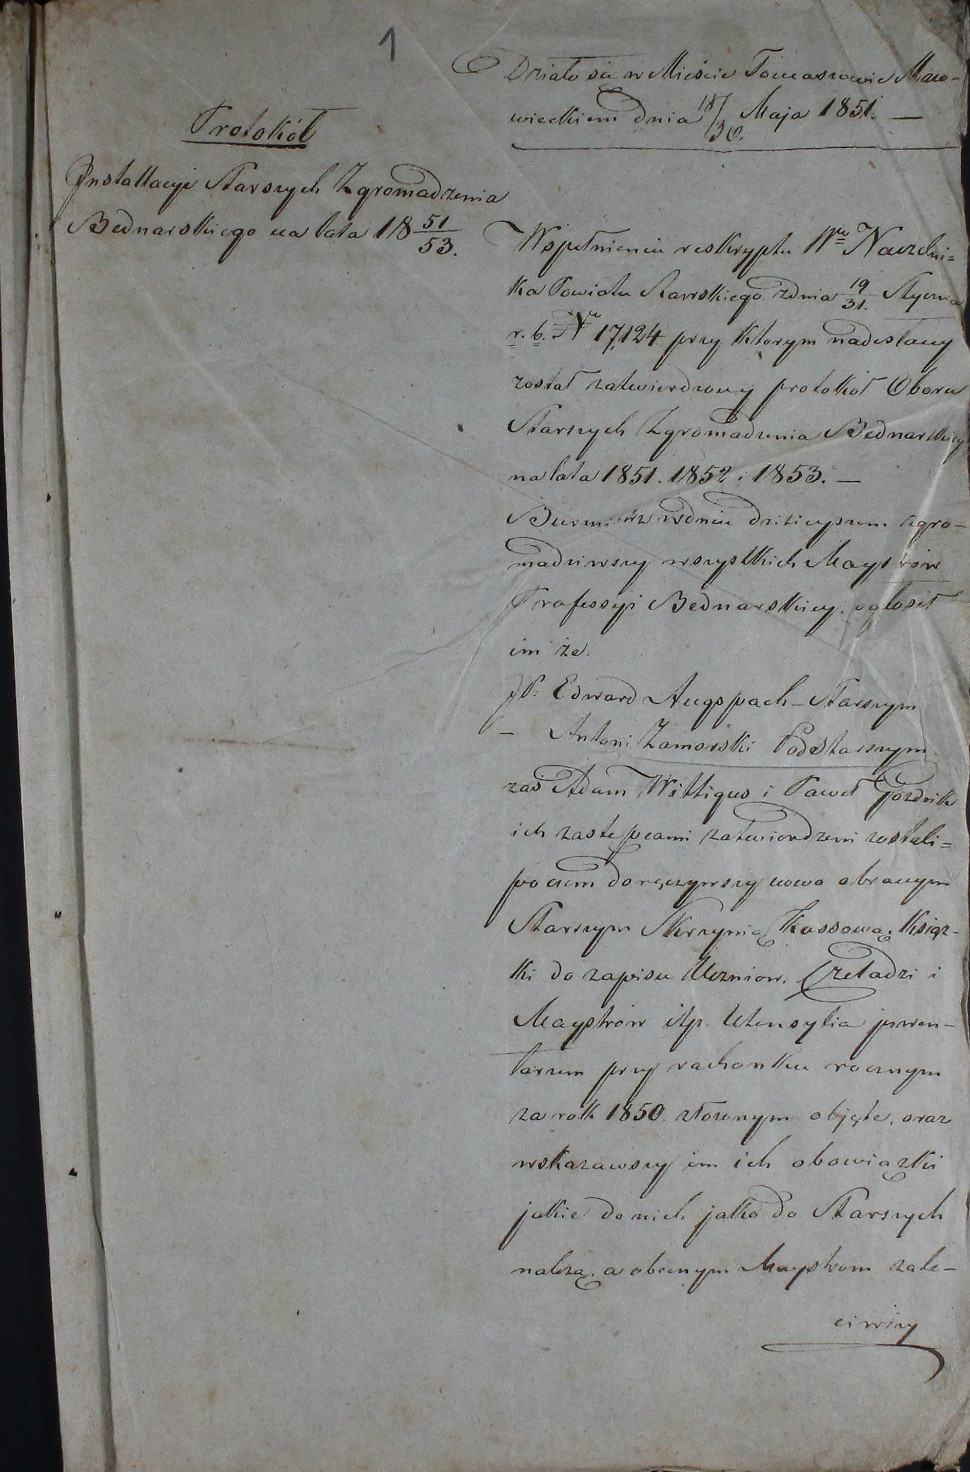 1
Protokół
Installacyi Starszych Zgromadzenia
Bednarskiego na lata 18 51/53.
Działo się w Mieście Tomaszowie Mazo-
wieckiem dnia 18/30 Maja 1851. —
W spełnieniu reskryptu Wgo Naczelni=
ka Powiatu Rawskiego z dnia 19/31 Stycznia
r. b. No 17,124 przy którym nadesłany
został zatwierdzony protokół Oboru
Starszych Zgromadzenia Bednarskiego
na lata 1851. 1852 i 1853. —
Burmistrz w dniu dzisieyszem zgro-
madziwszy wszystkich Maystrów
Professyi Bednarskiey, ogłosił
im że.
JP. Edward Augspach – Starszym
– Antoni Zamorski Podstarszym
zaś Adam Wittigus i Paweł Gozdnik
ich zastępcami zatwierdzeni zostali=
poczem doręczywszy nowo obranym
Starszym Skrzynię Kassową, Książ-
ki do zapisu Uczniow, Czeladzi i
Maystrów itp. Utensylia inwen-
tarzem przy rachunku rocznym
za rok 1850. złożonym objęte, oraz
wskazawszy im ich obowiązki
jakie do nich jako do Starszych
należą, a obecnym Maystrom zale-
ciwszy